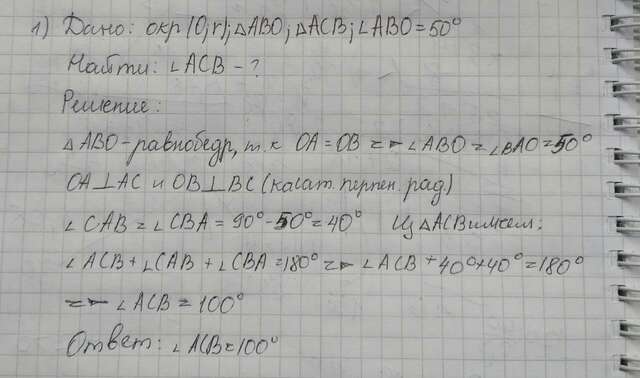 1) Дано: окр (O; r); △ABO; △ACB; ∠ABO = 50°
Найти: ∠ACB - ?
Решение:
△ABO - равнобедр, т.к OA = OB => ∠ABO = ∠BAO = 50°
OA⊥AC и OB⊥BC (касат. перпен. рад.)
∠CAB = ∠CBA = 90° - 50° = 40° Из △ACB имеем:
∠ACB + ∠CAB + ∠CBA = 180° => ∠ACB + 40° + 40° = 180°
=> ∠ACB = 100°
Ответ: ∠ACB = 100°